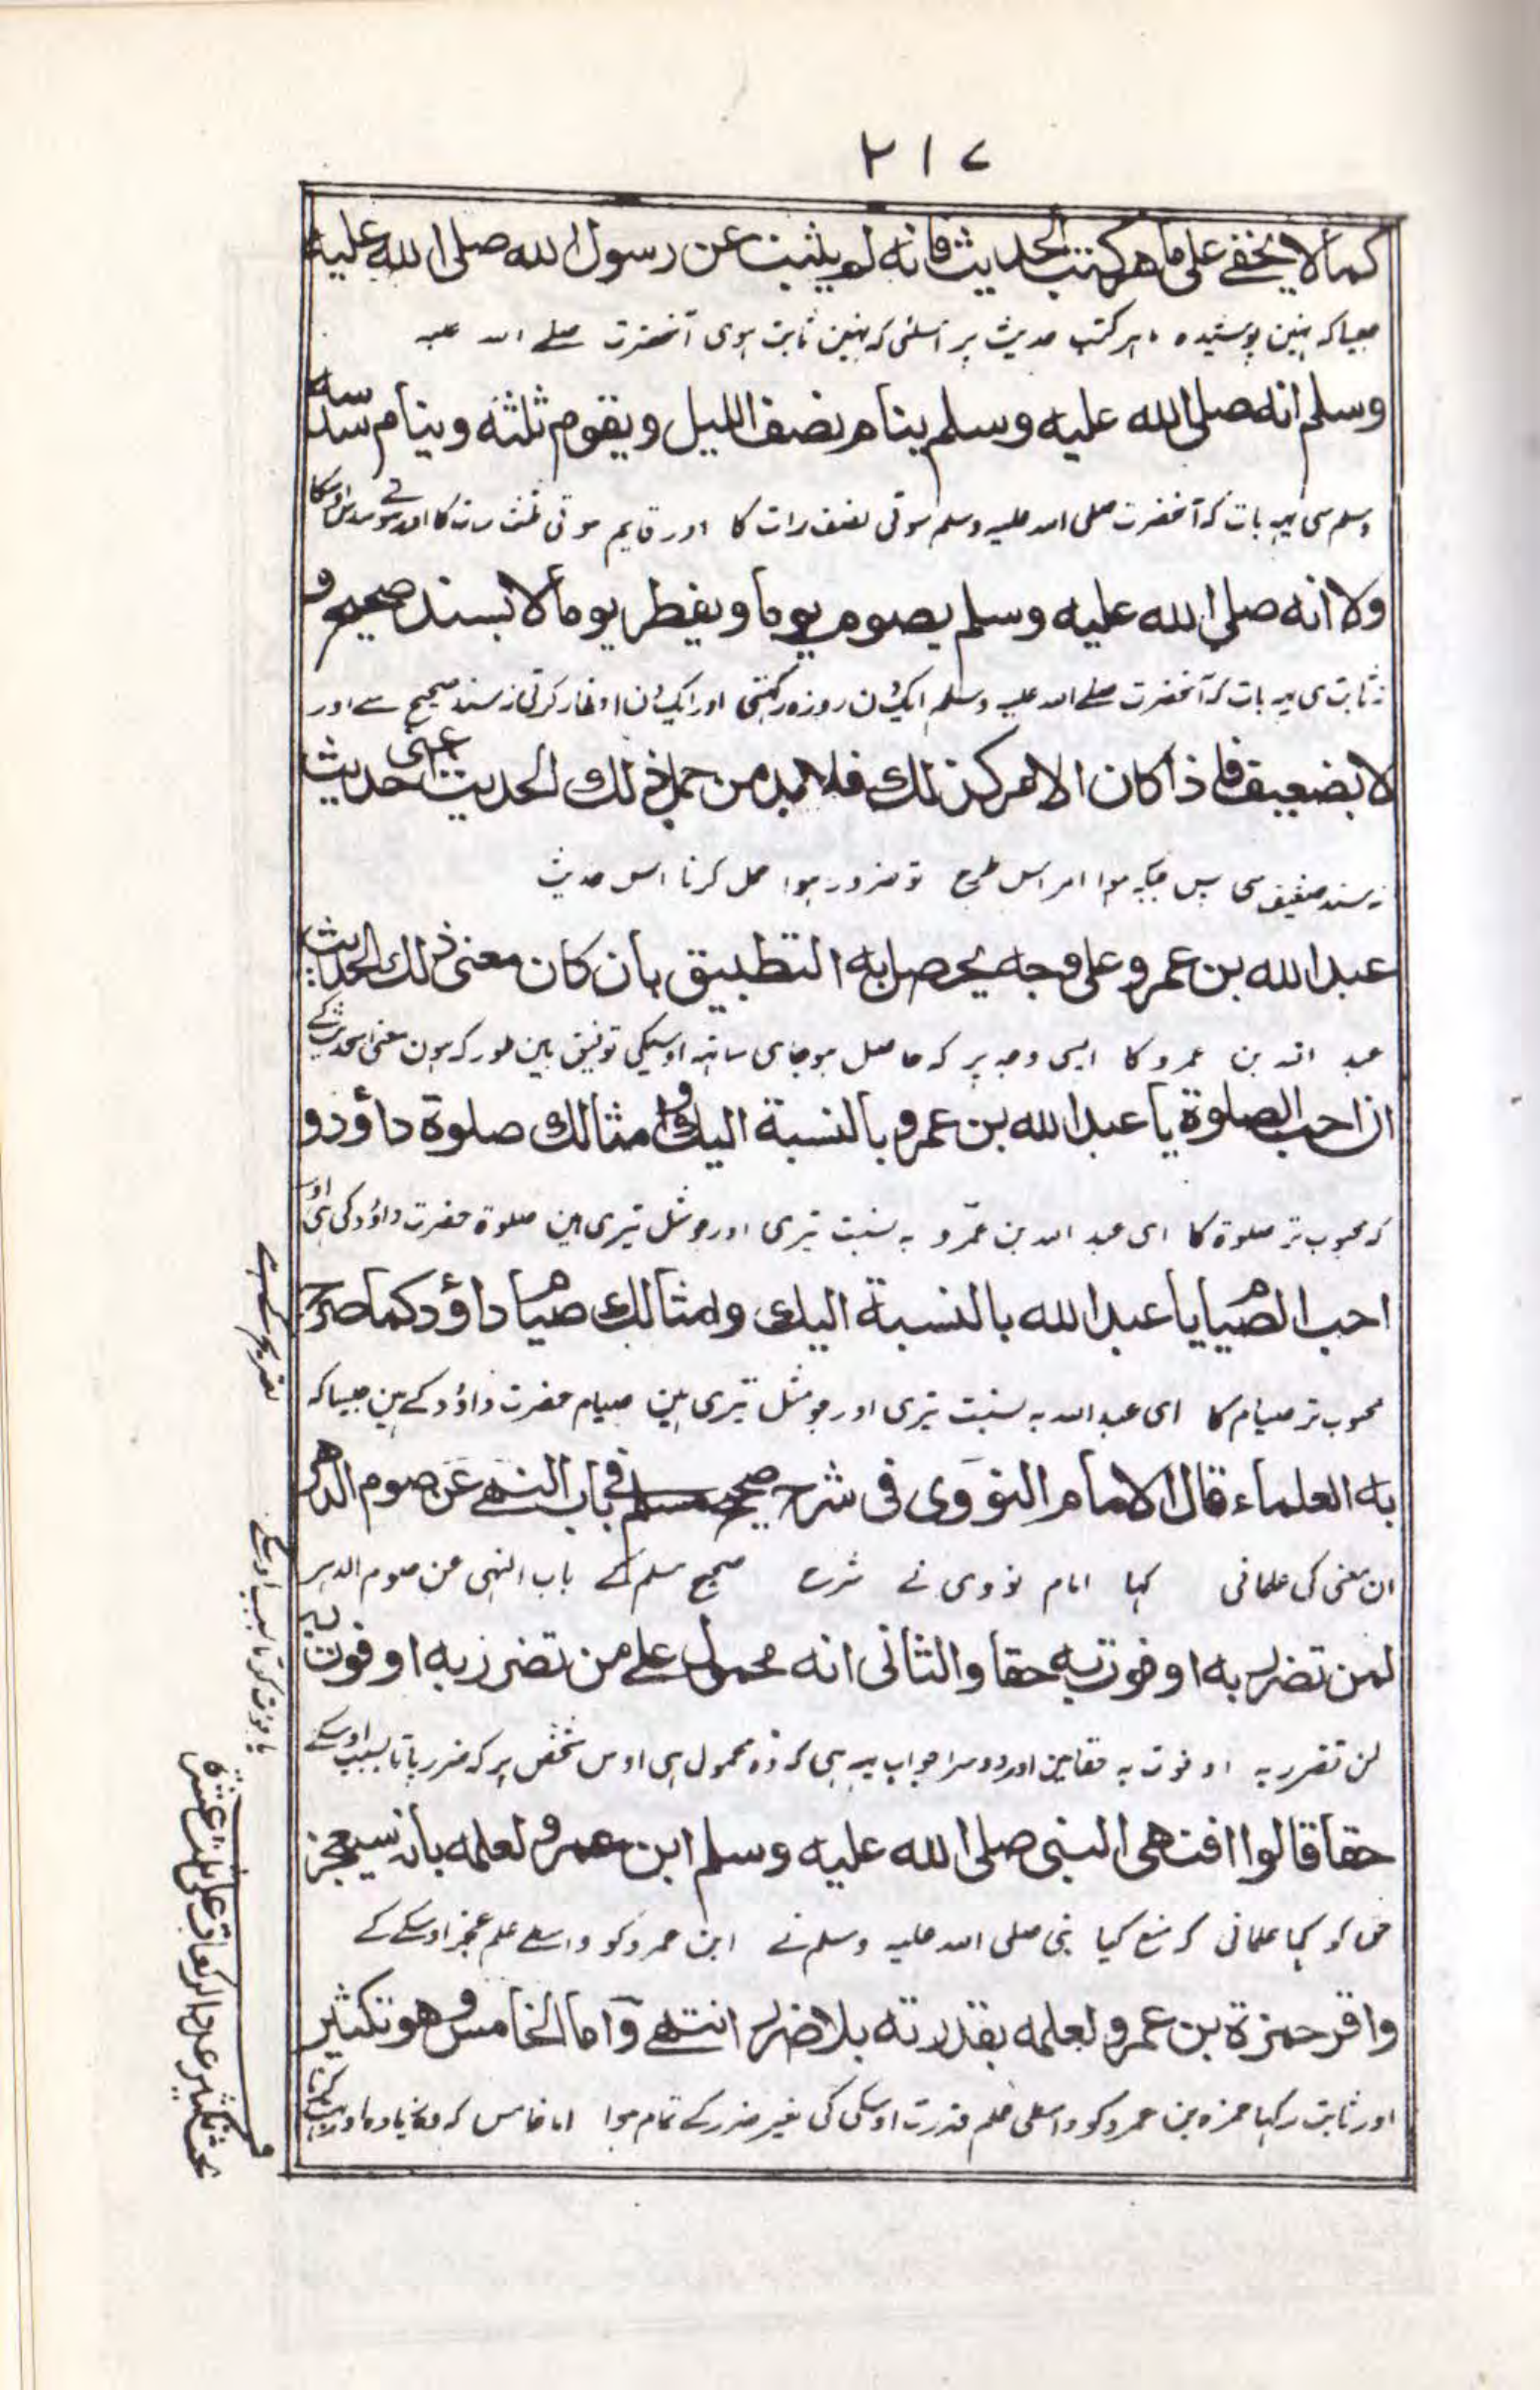 ۲۱۷
كما لا يخفى على ماهر كتب الحديث فانه لم يثبت عن رسول الله صلى الله عليه
جیسا کہ نہین پوشیدہ ماہر کتب حدیث پر اسلئی کہ نہین ثابت ہوی آنحضرت صلے اللہ علیہ
وسلم انه صلى الله عليه وسلم ينام نصف الليل ويقوم ثلثه وينام سدسه
وسلم سی یہہ بات کہ آنحضرت صلی اللہ علیہ وسلم سوتی نصف رات کا اور قایم ہوتی ثلث رات کا اور سوتے سدس اوسکا
ولا انه صلى الله عليه وسلم يصوم يوما ويفطر يوما لا بسند صحيح و
نہ ثابت ہی یہ بات کہ آنحضرت صلے اللہ علیہ وسلم ایک دن روزہ رکہتی اور ایک دن افطار کرتی نہ سند صحیح سے اور
لا بضعيف فاذا كان الامر كذلك فلا بد من حمل ذلك الحديث اعنی حديث
نہ سند ضعیف سی پس جبکہ ہوا امر اس طرح تو ضرور ہوا حمل کرنا اس حدیث
عبد الله بن عمرو على وجه يحصل به التطبيق بان كان معنى ذلك الحديث
عبد اللہ بن عمرو کا ایسی وجہ پر کہ حاصل ہوجاى ساتہہ اوسیکی توفیق باین طور کہ ہون معنی اس حدیث کے
ان احب الصلوة يا عبد الله بن عمرو بالنسبة اليك وامثالك صلوة داؤد و
کہ محبوب تر صلوۃ کا ای عبد اللہ بن عمرو بہ نسبت تیری اور جو مثل تیری ہین صلوۃ حضرت داؤد کی ہی اور
احب الصيام يا عبد الله بالنسبة اليك وامثالك صيام داؤد كما صرح
محبوب تر صیام کا ای عبد اللہ بہ نسبت تیری اور جو مثل تیری ہین صیام حضرت داؤد کے ہین جیسا کہ
به العلماء قال الامام النووى فى شرح صحيح مسلم فى باب النهى عن صوم الدهر
ان معنی کی علمانی کہا امام نووی نے شرح صحیح مسلم کے باب النہی عن صوم الدہر
لمن تضرر به او فوت به حقا والثانى انه محمول على من تضرر به او فوت به
لمن تضرر بہ او فوت بہ حقا مین اور دوسرا جواب یہہ ہی کہ وہ محمول ہی اوس شخص پر کہ ضرر پاتا بسبب اوسکے
حقا قالوا افنهى النبى صلى الله عليه وسلم ابن عمرو لعلمه بانه سيعجز
حق کو کہا علمانی کہ منع کیا نبی صلی اللہ علیہ وسلم نے ابن عمرو کو واسطے علم عجز اوسکے کے
واقر حمزة بن عمرو لعلمه بقدرته بلا ضرر انتهى وآما الخامس وهو تكثير
اور ثابت رکہا حمزہ بن عمرو کو واسطی علم قدرت اوسکی کی بغیر ضرر کے تمام ہوا اما خامس کہ وہ زیادہ اور
تصریح کی ہے
یا فوت کرتا بسبب اوسکے
بحث تكثير عدد الركعات على ثلث عشرة